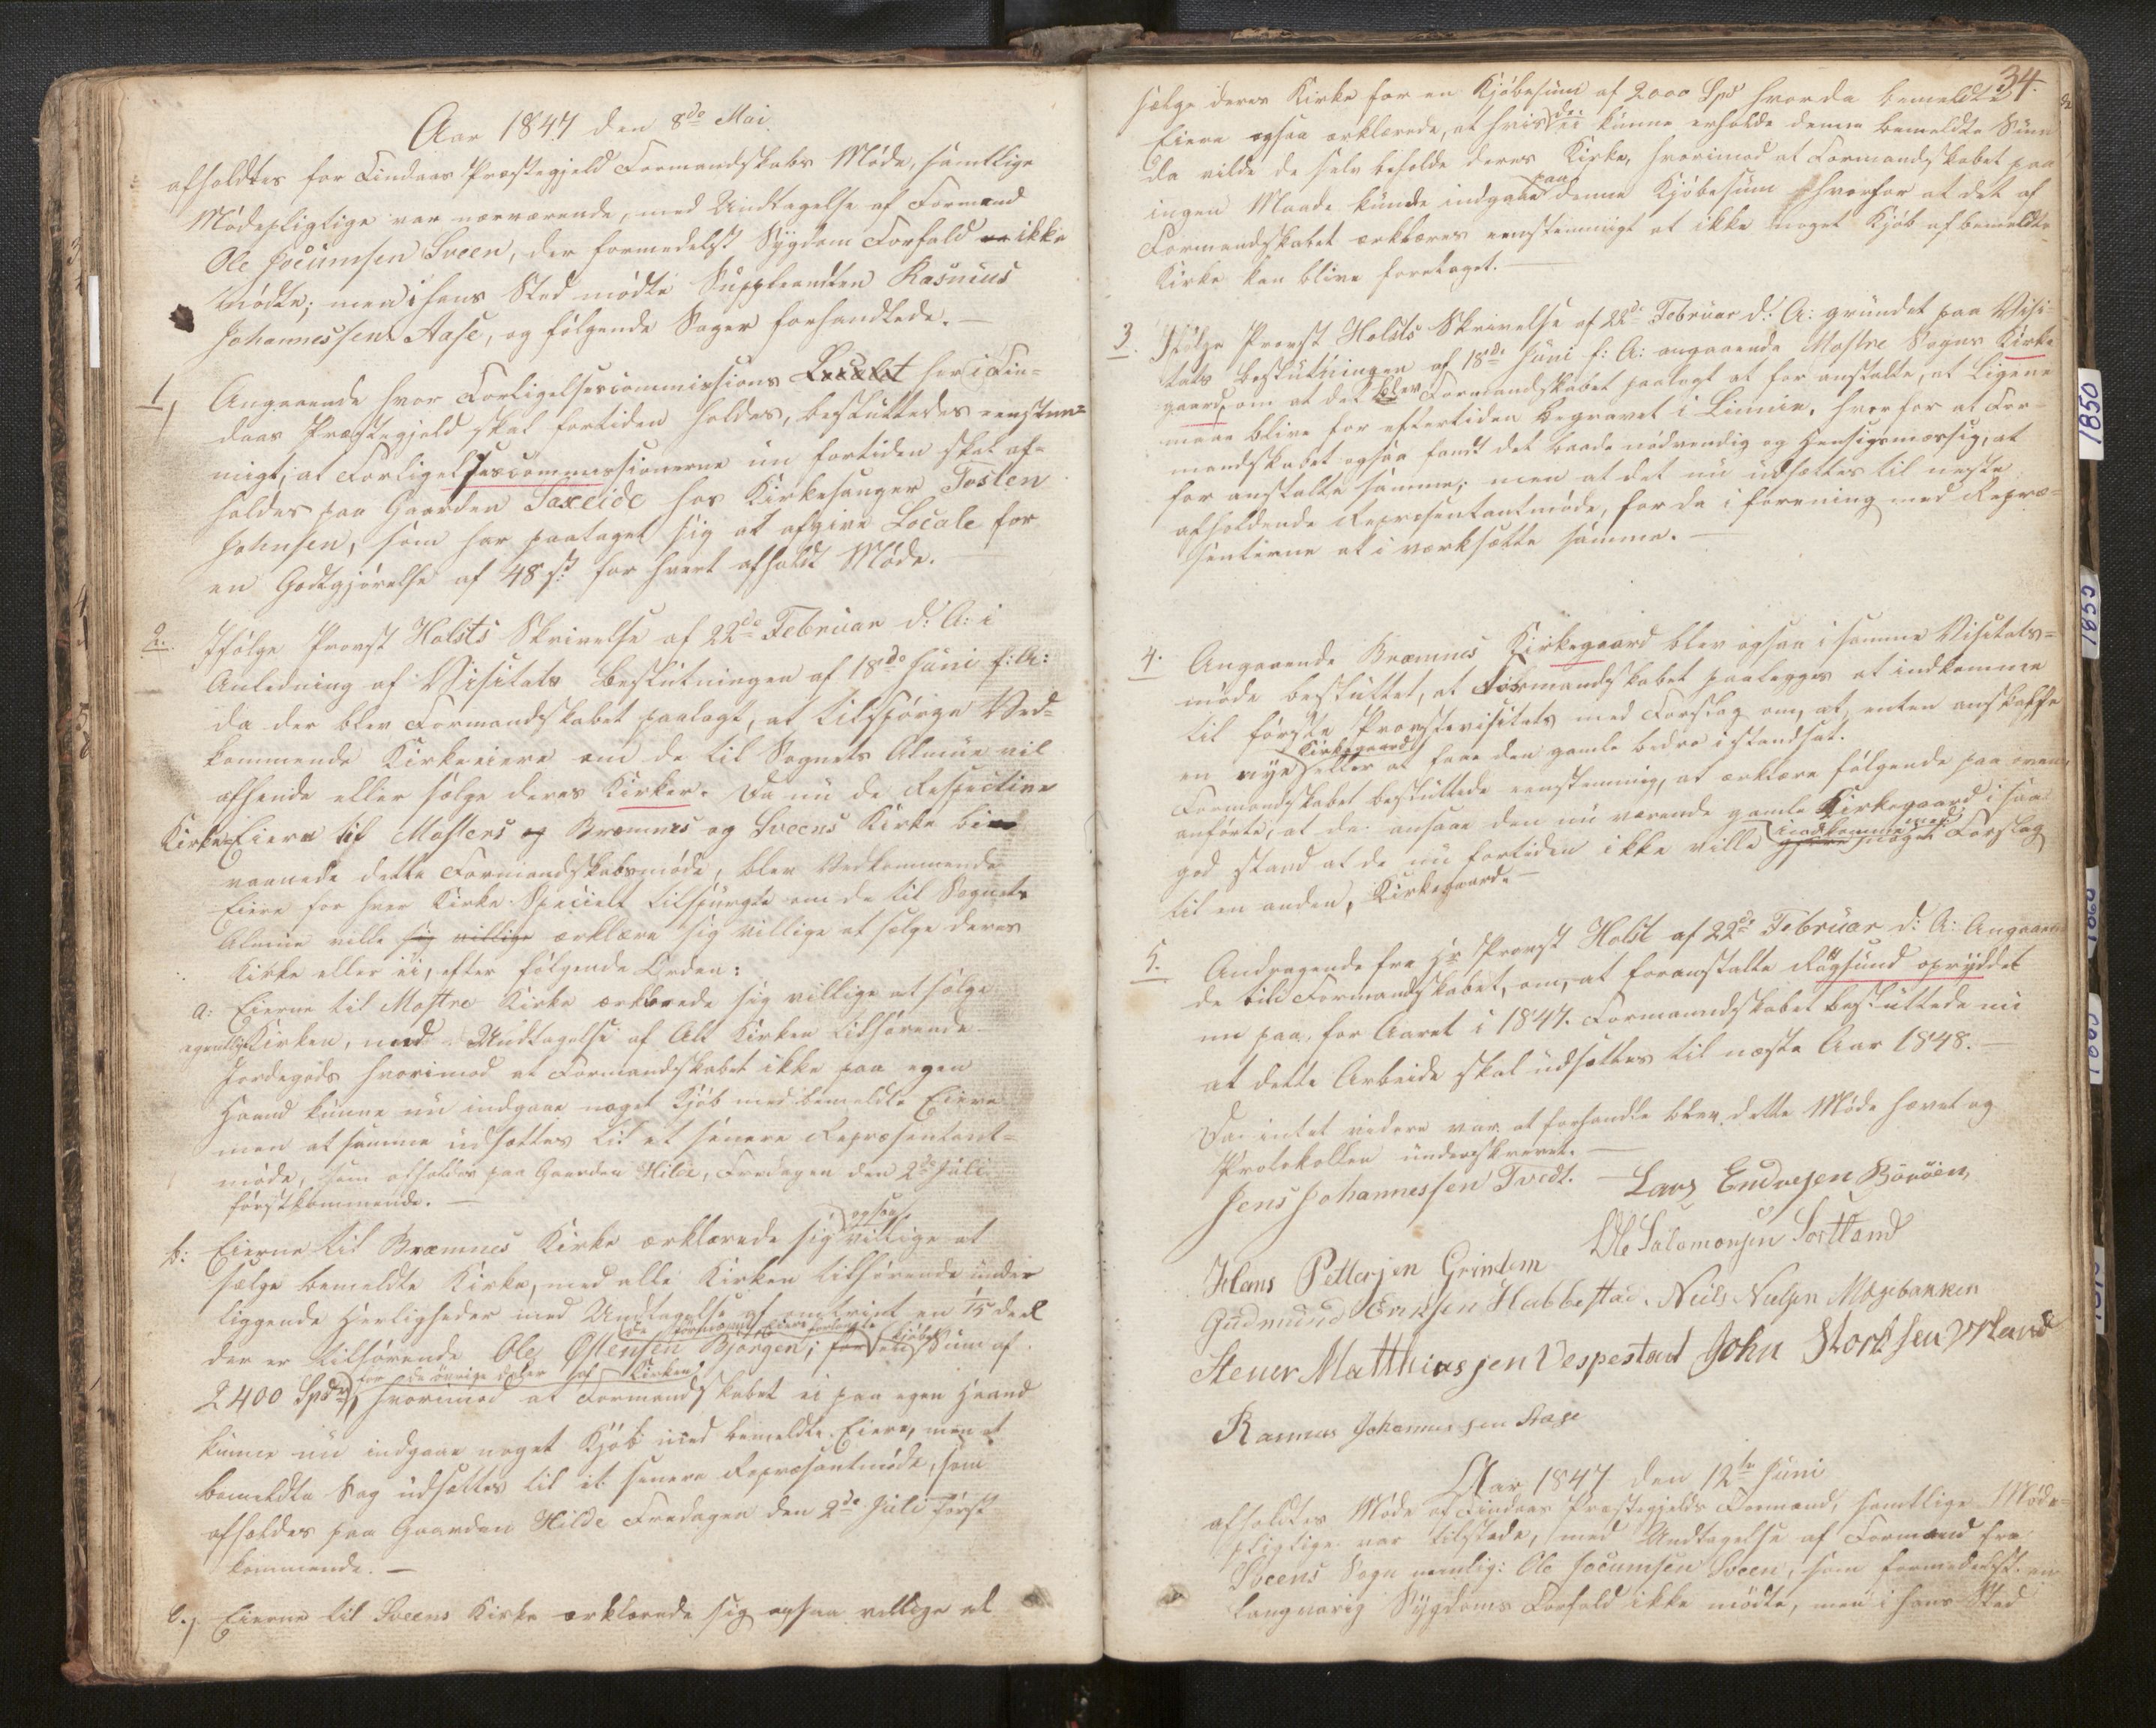 Aar 1847 den 8de Mai
afholdtes for Findaas Præstegjeld Formandskabs Møde, samtlige
Mødepligtige var nærværende, med Undtagelse af Formand
Ole Jocumsen Sveen, der formedelst Sygdom Forfald ikke
mødte; men i hans Sted mødte Suppleandten Rasmus
Johannessen Aase, og følgende Sager forhandlede. —
1, Angaaende hvor Forligelsescommissions Localet her i Fin=
daas Præstegjeld skal fortiden holdes, besluttedes eenstem=
migt, at Forligelsescommissionerne nu fortiden skal af=
holdes paa Gaarden Saxeide hos Kirkesanger Tosten
Johnsen, som har paataget sig at afgive Locale for
en Godtgjørelse af 48 s. for hvert afholdt Møde.
2. Ifølge Provst Holsts Skrivelse af 22de Februar d: A: i
Anledning af Visitats Beslutningen af 18de Juni f: A:
da der blev Formandskabet paalagt, at tilspørge Ved=
kommende Kirkeeiere om de til Sognets Almue vil
afhende eller sælge deres Kirker. Da nu de Respective
Kirke Eiere til Mosters og Bræmnes og Sveens Kirke bi
vaanede dette Formandskabsmøde, blev Vedkommende
Eiere for hver Kirke Specielt tilspurgte om de til Sognets
Almue ville sig villige erklære sig villige at sælge deres
Kirke eller ei, efter følgende Orden:
a: Eierne til Mostre Kirke erklærede sig villige at sælge
egentlige Kirken, med Undtagelse af Alt Kirken tilhørende
Jordegods hvorimod at Formandskabet ikke paa egen
Haand kunne nu indgaae noget Kjøb med bemeldte Eiere
men at samme udsættes til et senere Repræsentant=
møde, som afholdes paa Gaarden Hilde, Fredagen den 2de Juli
førstkommende. —
b: Eierne til Bræmnes Kirke erklærede sig ogsaa villige at
sælge bemeldte Kirke, med alle Kirken tilhørende under
liggende Herligheder med Undtagelse af omtrent en 1/15 deel
der er tilhørende Ole Østensen Bjørgen; de Eiere forlangte for en Kjøbe Sum af
2400 Spdr for de øvrige deler af Kirken, hvorimod at Formandskabet ei paa egen Haand
kunne nu indgaae noget Kjøb med bemeldte Eiere, men at
bemeldte Sag udsættes til et senere Repræsentmøde, som
afholdes paa Gaarden Hilde Fredagen den 2de Juli først
kommende. —
c., Eierne til Sveens Kirke erklærede sig ogsaa villige at
34.
sælge deres Kirke for en Kjøbesum af 2000 Spd hvorda bemeldte
Eiere ogsaa erklærede, at hvis de ei kunne erholde denne bemeldte Sum
da vilde de selv beholde deres Kirke, hvorimod at Formandskabet paa
ingen Maade kunde indgaae paa denne Kjøbesum hvorfor at det af
Formandskabet erklæres eenstemmigt at ikke noget Kjøb af bemeldte
Kirke kan blive foretaget. —
3. Ifølge Provst Holsts Skrivelse af 22de Februar d: A: grundet paa Visi=
tats Beslutningen af 18de Juni f: A: angaaende Mostre Sogns Kirke
gaard, om at det blev Formandskabet paalagt at for anstalte, at Ligene
maae blive for eftertiden begravet i Linnie, hvorfor at For=
mandskabet ogsaa fandt det baade nødvendig og Hensigtsmæssig, at
for anstalte samme; men at det nu udsættes til neste
afholdende Repræsentantmøde, for da i forening med Repræ=
senterne at i værksætte samme. —
4. Angaaende Bræmnes Kirkegaard blev ogsaa i samme Visitats=
møde besluttet, at Formandskabet paalegges at indkomme
til første Provstevisitats med Forslag om, at enten anskaffe
en nye Kirkegaard eller at faae den gamle bedre istandsat.
Formandskabet besluttede eenstemmig, at erklære følgende paa oven
anførte, at de ansaae den nu værende gamle Kirkegaard i saa
god stand at de nu fortiden ikke ville indkomme med noget Forslag
til en anden, Kirkegaard. —
5. Andragende fra Hr Provst Holst af 22de Februar d: A: Angaaen
de till Formandskabet, om, at foranstalte Røgsund opryddet
nu paa, for Aaret i 1847. Formandskabet besluttede nu
at dette Arbeide skal udsættes til næste Aar 1848. —
Da intet videre var at forhandle blev dette Møde hævet og
Protokollen underskrevet. —
Jens Johannessen Tvedt. — Lars Endresen Börøen,
Hans Pettersen Grindem Ole Salomonsen Sortland
Gudmund Eriksen Habbestad. Niels Nielsen Mogebakken
Stener Matthiassen Vespestad John Storksen Urland
Rasmus Johannessen Aase
Aar 1847 den 12te Juni
afholdtes Møde af Findaas Præstegjelds Formænd, samtlige Møde=
pligtige var tilstede, med Undtagelse af Formand fra
Sveens Sogn nemlig: Ole Jocumsen Sveen, som formedelst en
langvarig Sygdoms Forfald ikke mødte, men i hans Sted
1850
1855
1860
1865